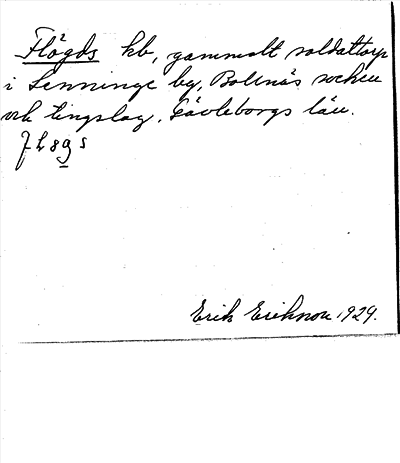 Flögds hb, gammalt soldattorp
i Senninge by, Bollnäs socken
och tingslag, Gävleborgs län.
Erik Eriksson 1929.